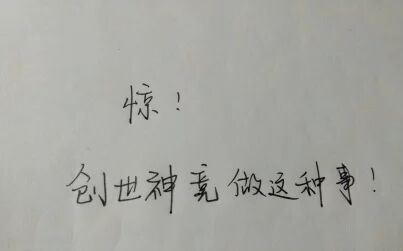 惊！
创世神竟做这种事！